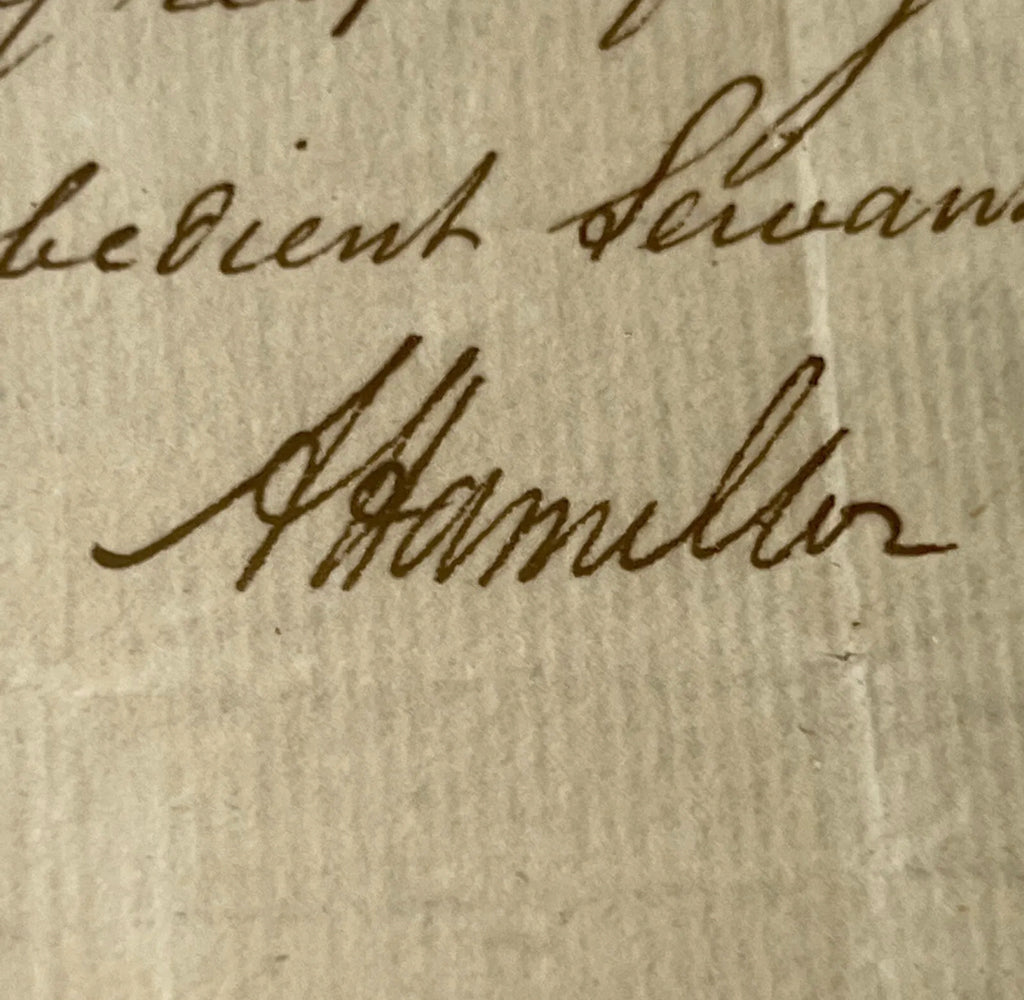 bedient Servant
A Hamilton